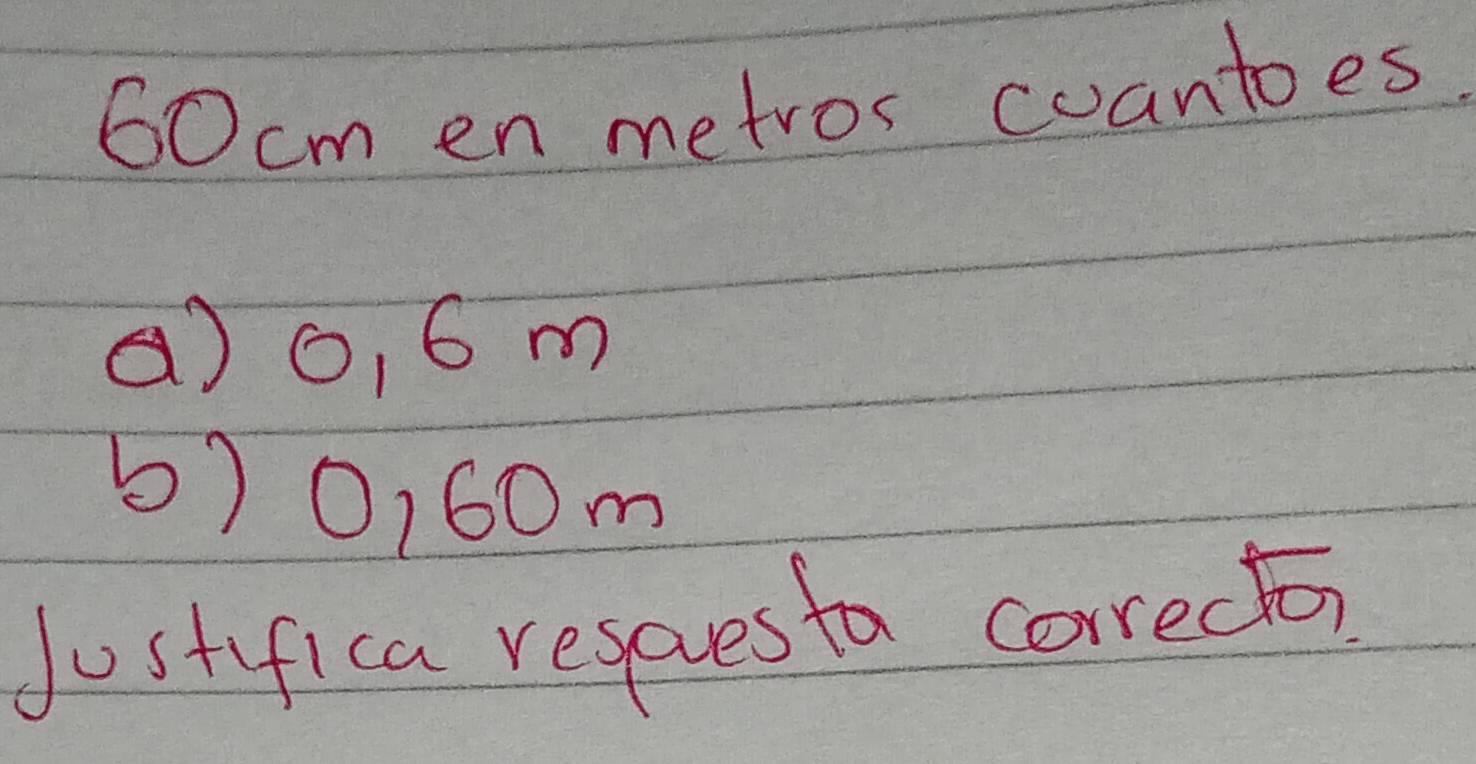 60cm en metros cuanto es.
a) 0,6 m
b) 0,60m
Justifica respuesta correcta.